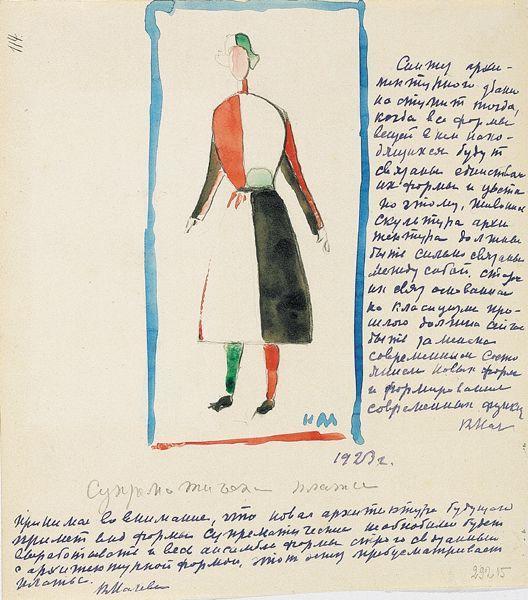 114.
Синтез архи-
тектурного здания
наступит тогда,
когда все формы
вещей в нем нахо-
дящихся будут
связаны единством
их формы и цвета
поэтому, живопись
скульптура архи
тектура должны
быть сильно связаны
между собой,
их связь основанная
на классицизме про-
шлого должна
быть заменена
современным состо
янием новых форм
и формирования
современных
КМ
1923 г.
Супрематическое платье
Принимая во внимание, что новая архитектура будущего
примет вид формы Супрематические необходимо будет
выработать и весь ансамбль формы строго связанный
с архитектурной формою, этот эскиз предусматривает
платье.
К Малеви